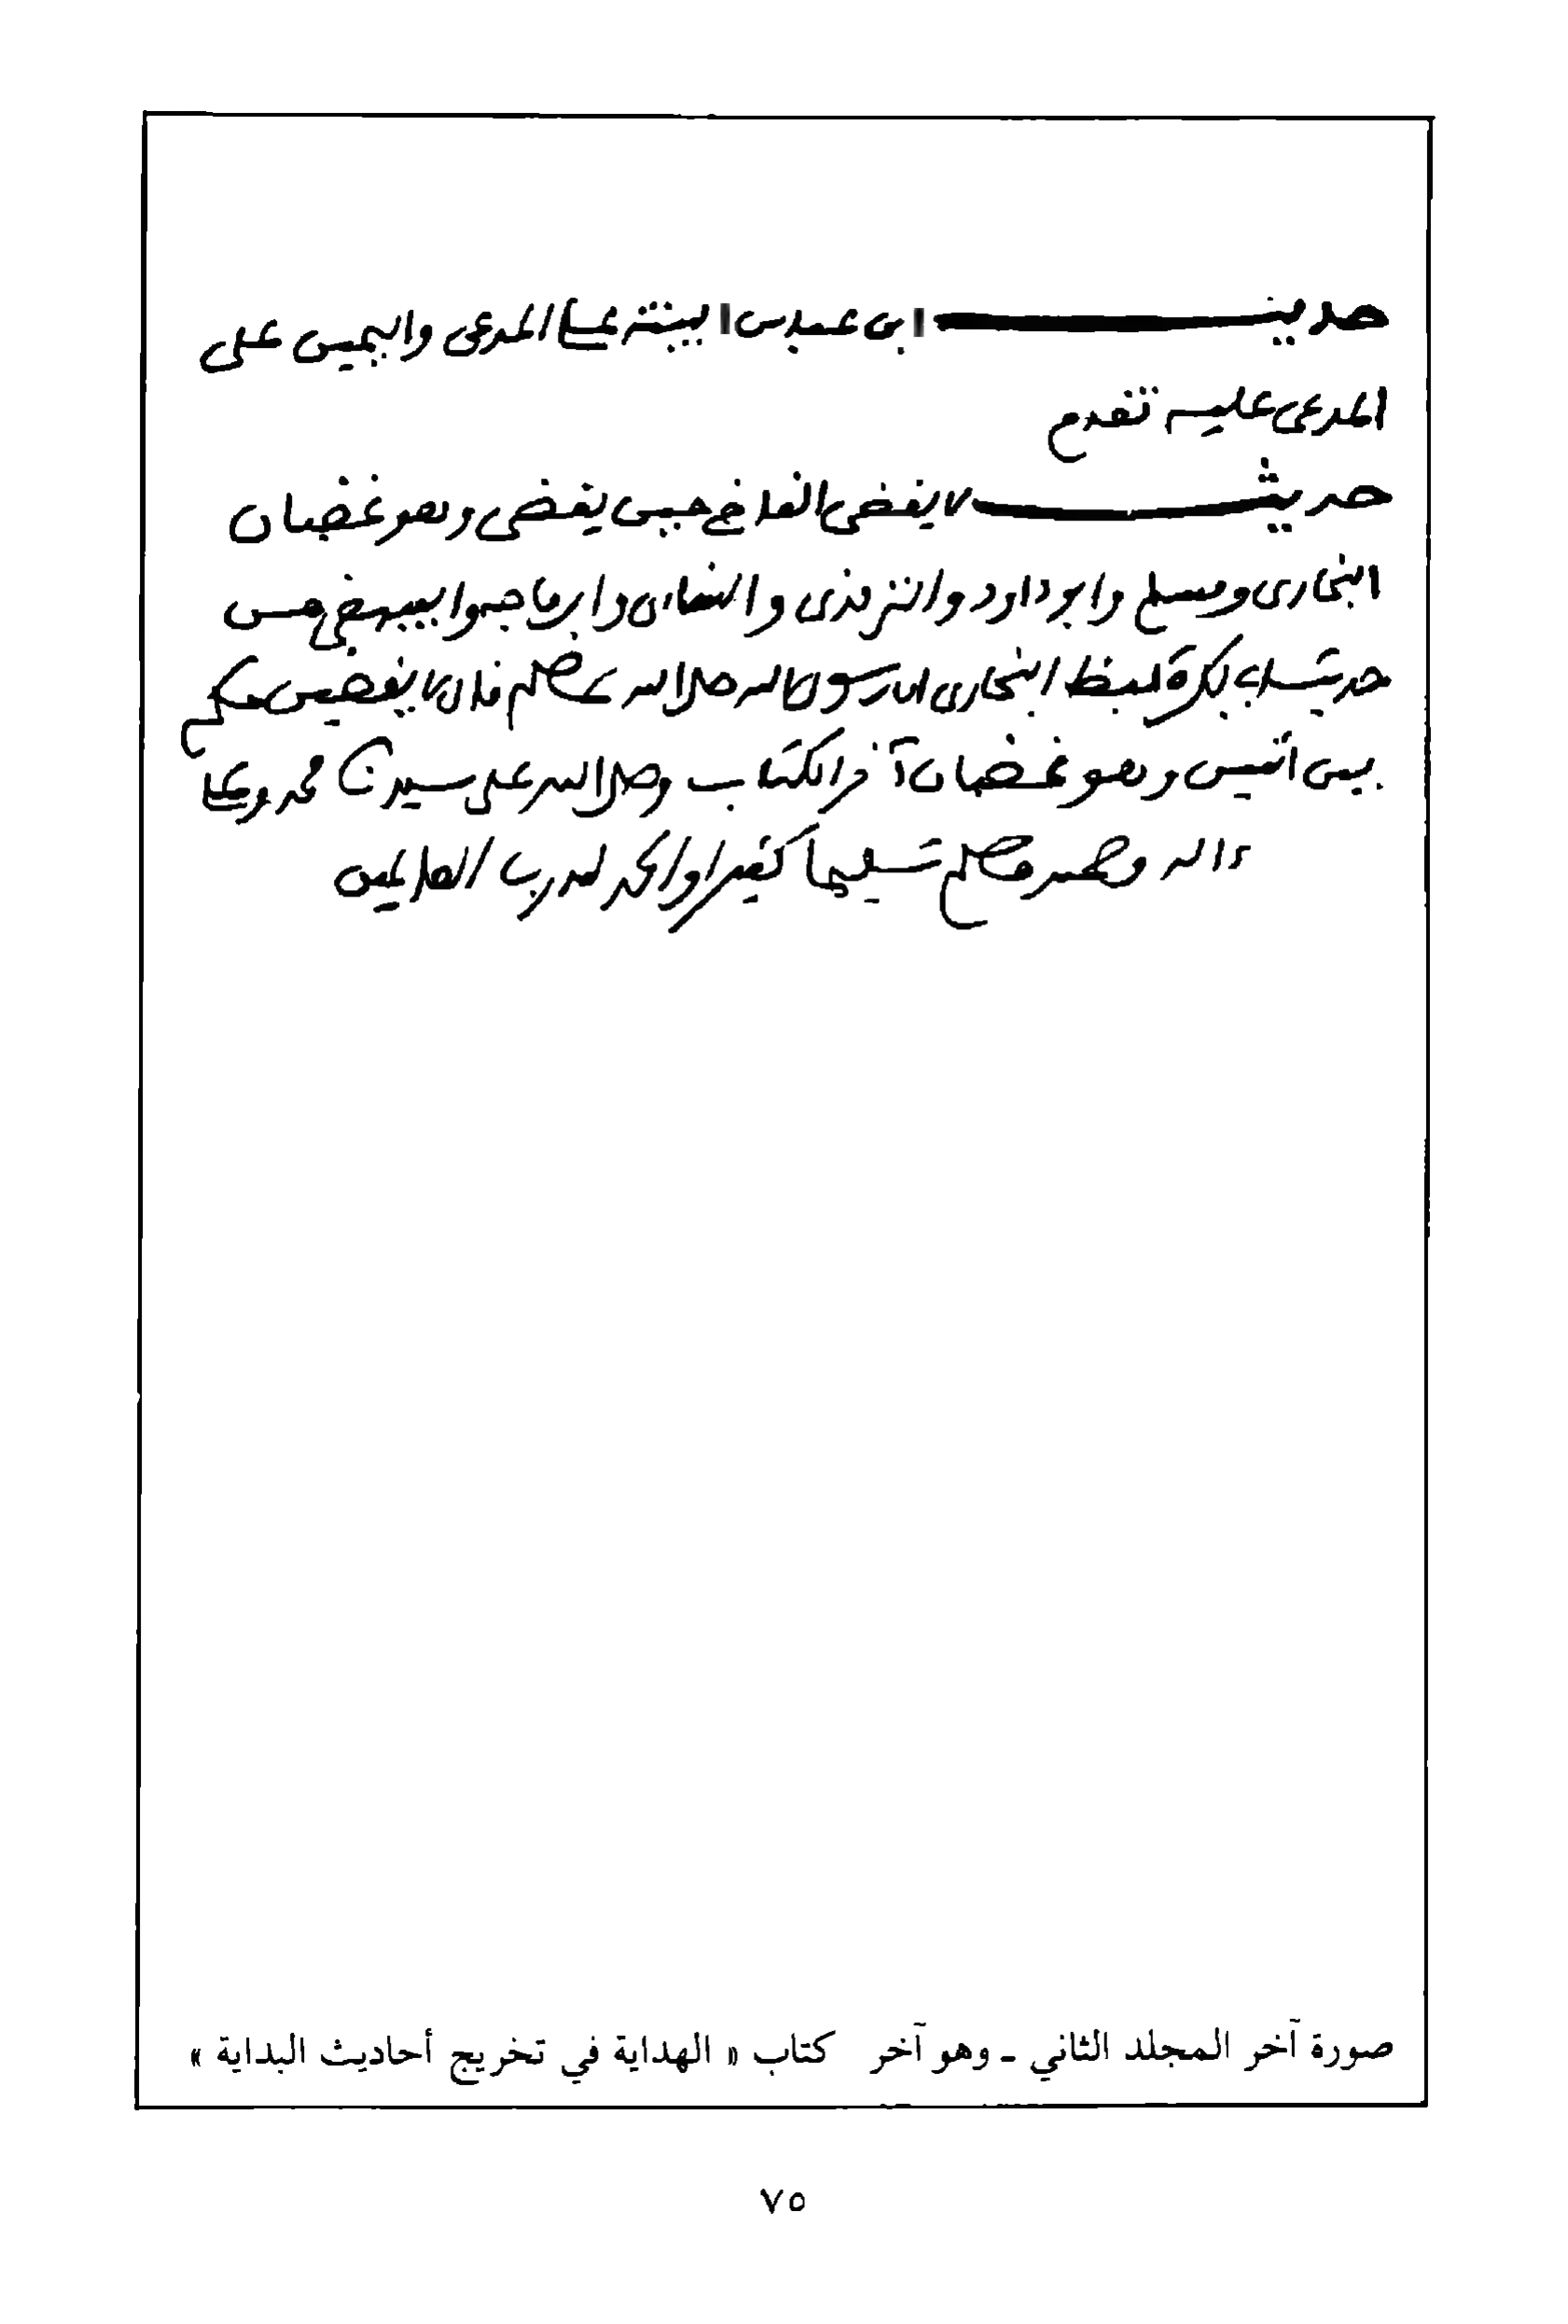 حديث ابن عباس البينة على المدعى واليمين على
المدعى عليه تقدم
حديث لا يقضى القاضي حين يقضى وهو غضبان
البخارى ومسلم وابو داود والترمذى والنساءى وابن ماجه والبيهقي من
حديث ابى بكرة لفظ البخارى ان رسول الله صلى الله عليه وسلم قال لا يقضين حكم
بين اثنين وهو غضبان آخر الكتاب وصلى الله على سيدنا محمد وعلى
ءاله وصحبه وسلم تسليما كثيرا والحمد لله رب العالمين
صورة آخر المجلد الثاني - وهو آخر كتاب « الهداية في تخريج أحاديث البداية »
٧٥